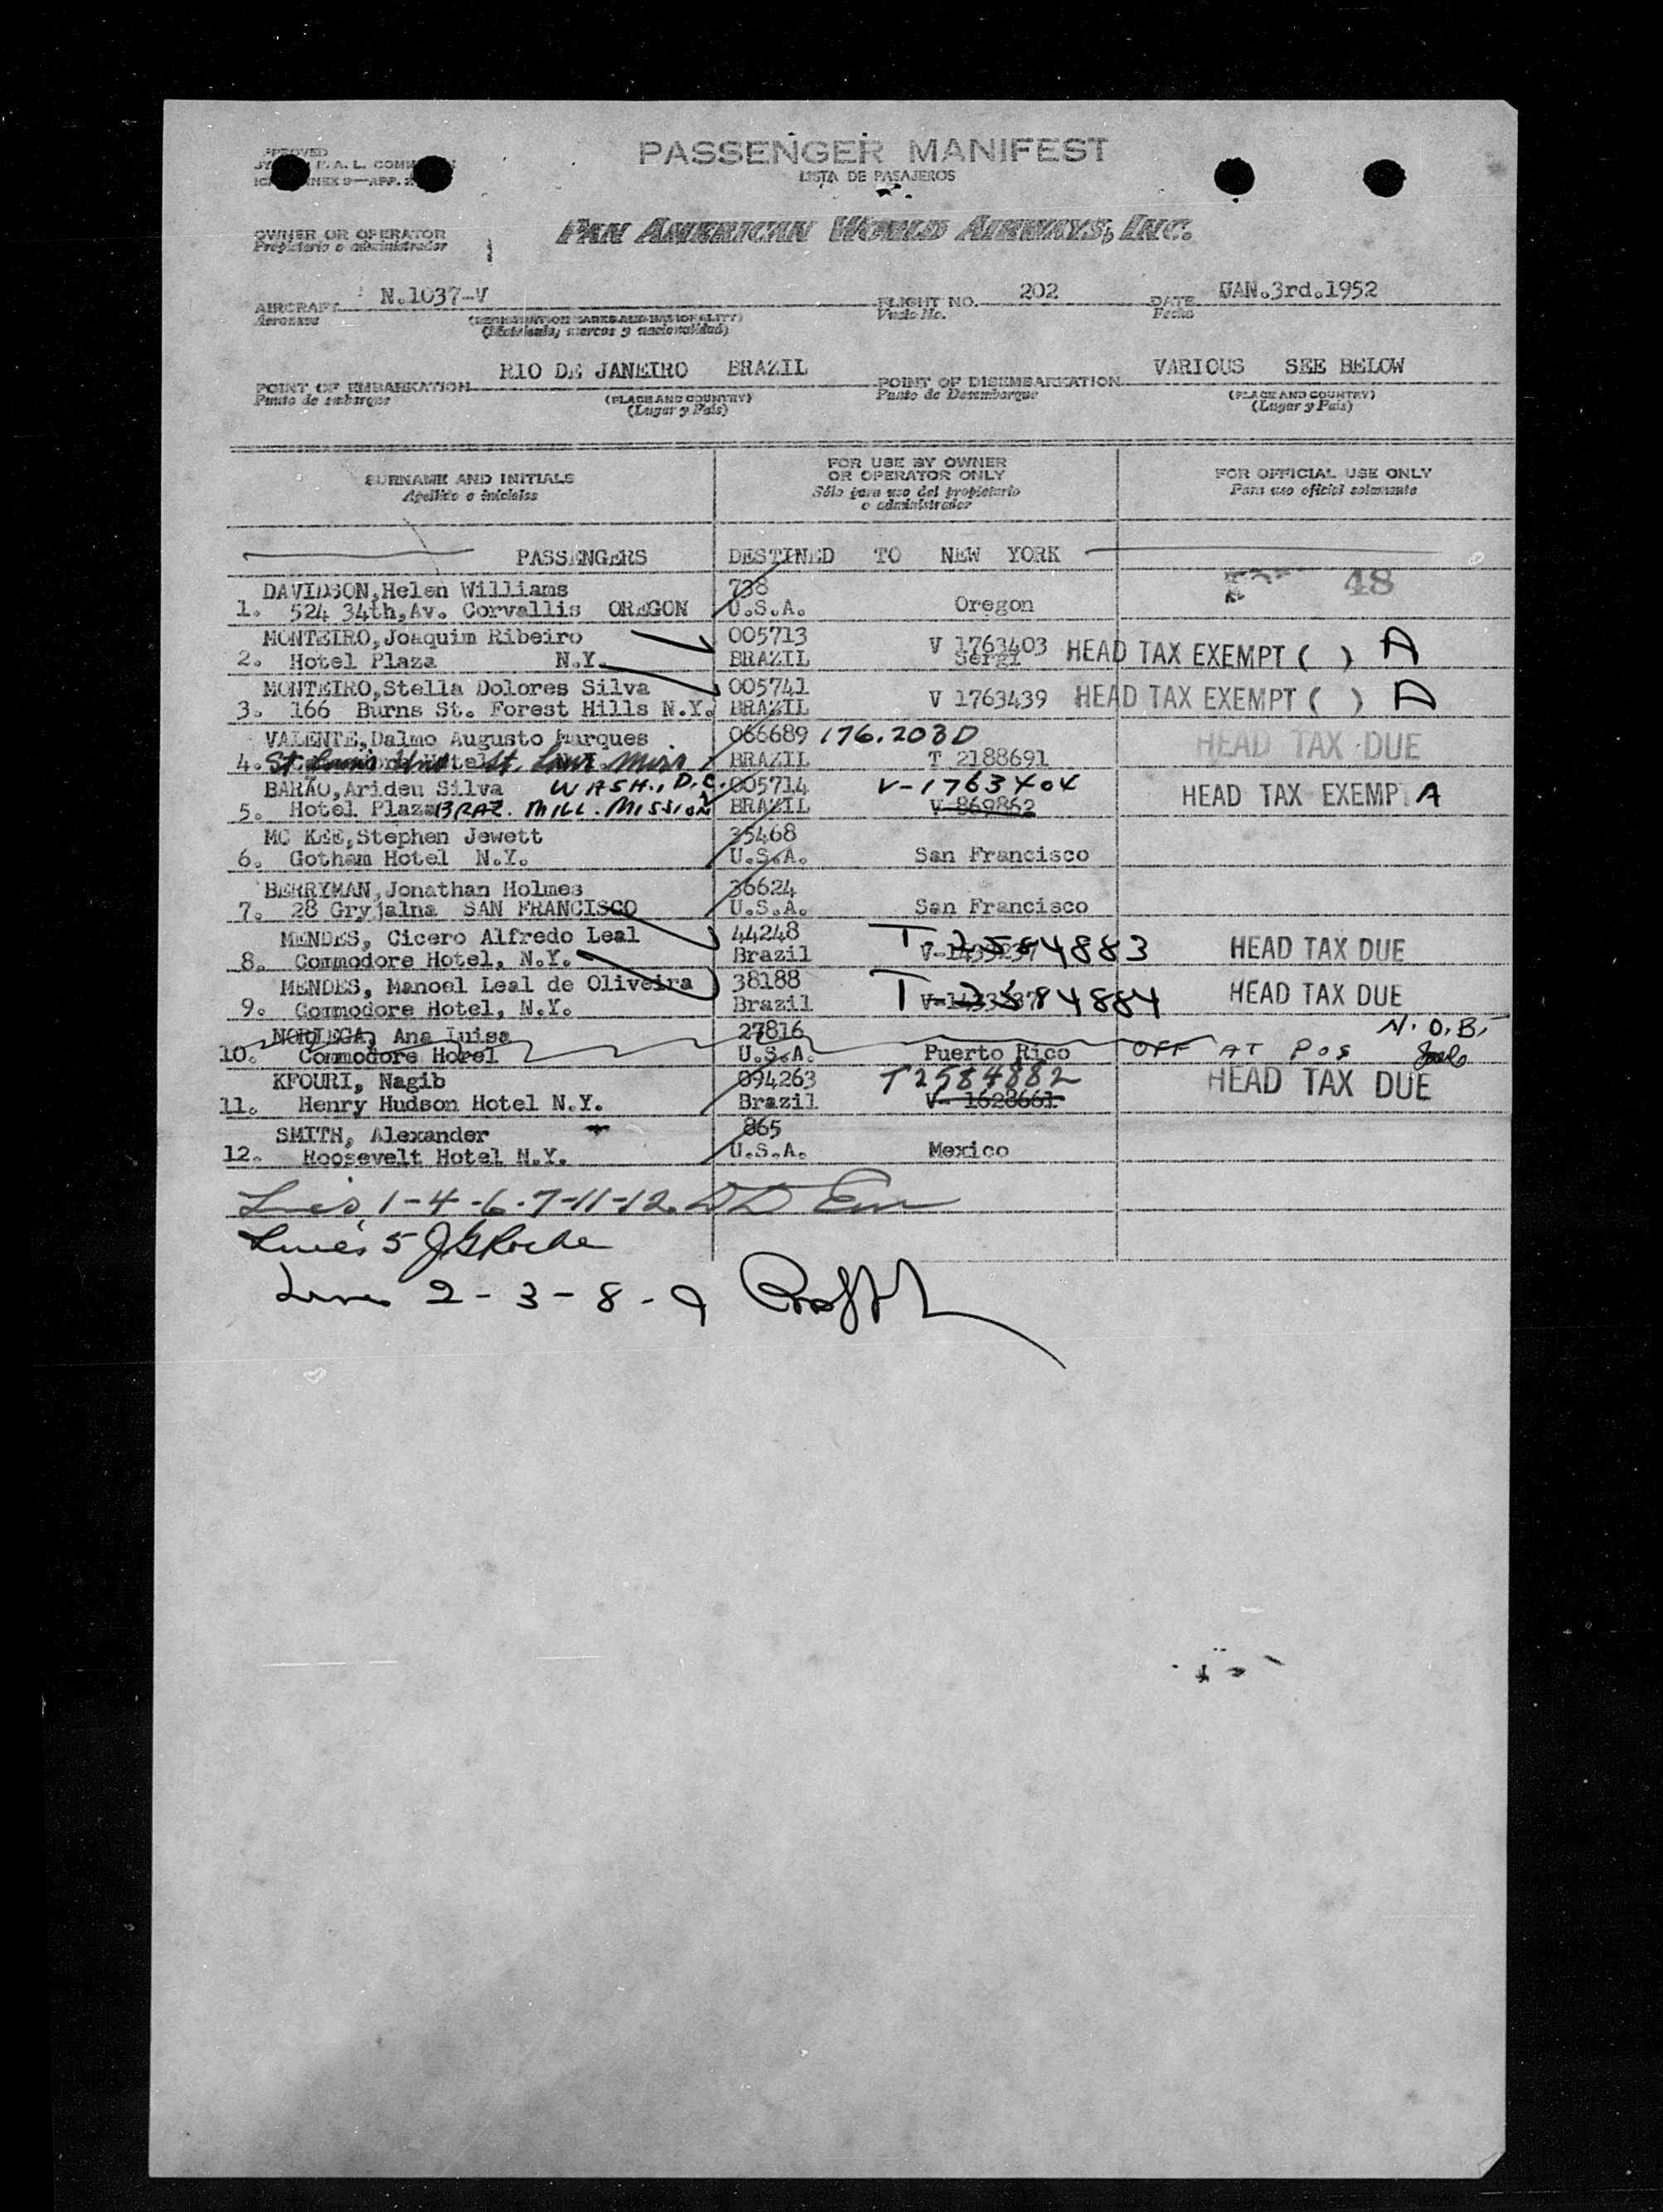 PASSENGER MANIFEST
LISTA DE PASAJEROS
PAN AMERICAN WORLD AIRWAYS, INC.
OWNER OR OPERATOR
Propietario o administrador
AIRCRAFT N.1037-V FLIGHT NO. 202 DATE JAN.3rd.1952
Aeronave Vuelo No. Fecha
(REGISTRATION MARKS AND NATIONALITY)
(Matrícula, marcas y nacionalidad)
POINT OF EMBARKATION RIO DE JANEIRO BRAZIL POINT OF DISEMBARKATION VARIOUS SEE BELOW
Punto de embarque (PLACE AND COUNTRY) Punto de Desembarque (PLACE AND COUNTRY)
(Lugar y País) (Lugar y País)
SURNAME AND INITIALS
Apellido e iniciales
FOR USE BY OWNER
OR OPERATOR ONLY
Sólo para uso del propietario
o administrador
FOR OFFICIAL USE ONLY
Para uso oficial solamente
PASSENGERS DESTINED TO NEW YORK
DAVIDSON,Helen Williams 738 48
1. 524 34th,Av. Corvallis OREGON U.S.A. Oregon
MONTEIRO,Joaquim Ribeiro 005713 V 1763403 HEAD TAX EXEMPT ( ) A
2. Hotel Plaza N.Y. BRAZIL Sergi
MONTEIRO,Stella Dolores Silva 005741
3. 166 Burns St. Forest Hills N.Y. BRAZIL V 1763439 HEAD TAX EXEMPT ( ) A
VALENTE,Dalmo Augusto Marques 066689 176.203D HEAD TAX DUE
4. St. BRAZIL T 2188691
BARÃO,Ariden Silva WASH., D.C. 005714 V-1763404 HEAD TAX EXEMP A
5. Hotel Plaza BRAZ. MILL. MISSION BRAZIL V 869862
MC KEE,Stephen Jewett 35468
6. Gotham Hotel N.Y. U.S.A. San Francisco
BERRYMAN,Jonathan Holmes 36624
7. 28 Gryjalna SAN FRANCISCO U.S.A. San Francisco
MENDES, Cicero Alfredo Leal 44248 T-2584883 HEAD TAX DUE
8. Commodore Hotel, N.Y. Brazil
MENDES, Manoel Leal de Oliveira 38188 T-2584884 HEAD TAX DUE
9. Commodore Hotel, N.Y. Brazil
NORIEGA, Ana Luisa 27816 N.O.B.
10. Commodore Horel U.S.A. Puerto Rico OFF AT POS
KFOURI, Nagib 094263 T2584882 HEAD TAX DUE
11. Henry Hudson Hotel N.Y. Brazil V- 1628661
SMITH, Alexander 865
12. Roosevelt Hotel N.Y. U.S.A. Mexico
1-4-6-7-11-12
5
2-3-8-9